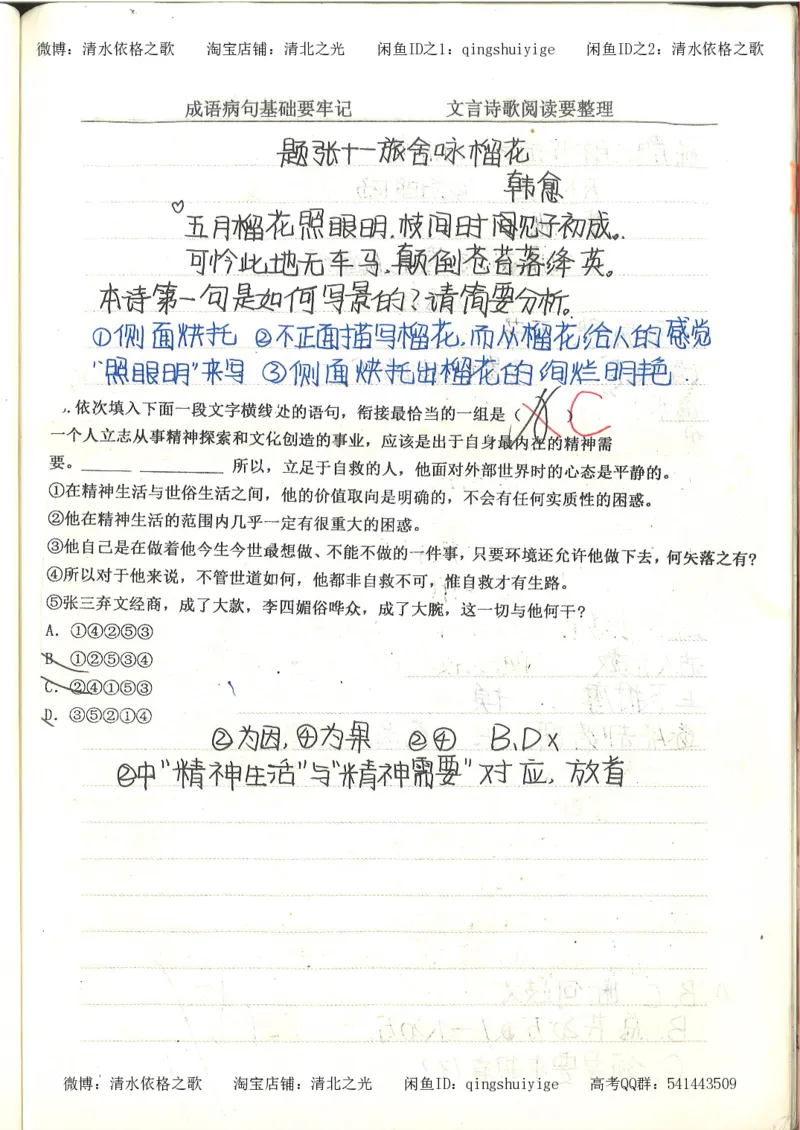 微博：清水依格之歌 淘宝店铺：清北之光 闲鱼ID之1：qingshuiyige 闲鱼ID之2：清水依格之歌
成语病句基础要牢记 文言诗歌阅读要整理
题张十一旅舍咏榴花
韩愈
五月榴花照眼明，枝间时闻见子初成。
可怜此地无车马，颠倒苍苔落绛英。
本诗第一句是如何写景的？请简要分析。
①侧面烘托 ②不正面描写榴花，而从榴花给人的感觉
“照眼明”来写 ③侧面烘托出榴花的绚烂明艳
依次填入下面一段文字横线处的语句，衔接最恰当的一组是（ C ）
一个人立志从事精神探索和文化创造的事业，应该是出于自身最内在的精神需
要。______ __________ 所以，立足于自救的人，他面对外部世界时的心态是平静的。
①在精神生活与世俗生活之间，他的价值取向是明确的，不会有任何实质性的困惑。
②他在精神生活的范围内几乎一定有很重大的困惑。
③他自己是在做着他今生今世最想做、不能不做的一件事，只要环境还允许他做下去，何失落之有？
④所以对于他来说，不管世道如何，他都非自救不可，惟自救才有生路。
⑤张三弃文经商，成了大款，李四媚俗哗众，成了大腕，这一切与他何干？
A．①④②⑤③
B ①②⑤③④
C．②④①⑤③
D．③⑤②①④
②为因，④为果 ②④ B、D×
②中“精神生活”与“精神需要”对应，放首
微博：清水依格之歌 淘宝店铺：清北之光 闲鱼ID：qingshuiyige 高考QQ群：541443509